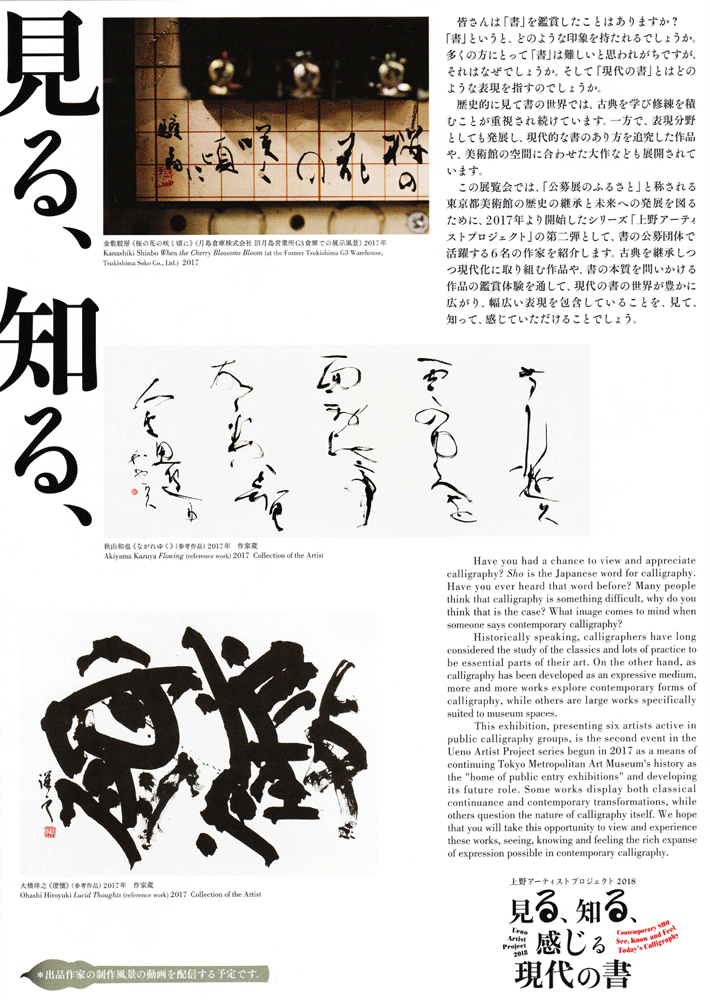 見る、知る、
金敷駸房《桜の花の咲く頃に》(月島倉庫株式会社 旧月島営業所G3倉庫での展示風景) 2017年
Kanashiki Shinbo When the Cherry Blossoms Bloom (at the Former Tsukishima G3 Warehouse,
Tsukishima Soko Co., Ltd.) 2017
皆さんは「書」を鑑賞したことはありますか?
「書」というと、どのような印象を持たれるでしょうか。
多くの方にとって「書」は難しいと思われがちですが、
それはなぜでしょうか。そして「現代の書」とはどの
ような表現を指すのでしょうか。
歴史的に見て書の世界では、古典を学び修練を積
むことが重視され続けています。一方で、表現分野
としても発展し、現代的な書のあり方を追究した作品
や、美術館の空間に合わせた大作なども展開されて
います。
この展覧会では、「公募展のふるさと」と称される
東京都美術館の歴史の継承と未来への発展を図る
ために、2017年より開始したシリーズ「上野アーティ
ストプロジェクト」の第二弾として、書の公募団体で
活躍する6名の作家を紹介します。古典を継承しつ
つ現代化に取り組む作品や、書の本質を問いかける
作品の鑑賞体験を通して、現代の書の世界が豊かに
広がり、幅広い表現を包含していることを、見て、
知って、感じていただけることでしょう。
秋山和也《ながれゆく》(参考作品) 2017年 作家蔵
Akiyama Kazuya Flowing (reference work) 2017 Collection of the Artist
Have you had a chance to view and appreciate
calligraphy? Sho is the Japanese word for calligraphy.
Have you ever heard that word before? Many people
think that calligraphy is something difficult, why do you
think that is the case? What image comes to mind when
someone says contemporary calligraphy?
Historically speaking, calligraphers have long
considered the study of the classics and lots of practice to
be essential parts of their art. On the other hand, as
calligraphy has been developed as an expressive medium,
more and more works explore contemporary forms of
calligraphy, while others are large works specifically
suited to museum spaces.
This exhibition, presenting six artists active in
public calligraphy groups, is the second event in the
Ueno Artist Project series begun in 2017 as a means of
continuing Tokyo Metropolitan Art Museum's history as
the "home of public entry exhibitions" and developing
its future role. Some works display both classical
continuance and contemporary transformations, while
others question the nature of calligraphy itself. We hope
that you will take this opportunity to view and experience
these works, seeing, knowing and feeling the rich expanse
of expression possible in contemporary calligraphy.
大橋洋之《澄懐》(参考作品) 2017年 作家蔵
Ohashi Hiroyuki Lucid Thoughts (reference work) 2017 Collection of the Artist
上野アーティストプロジェクト 2018
見る、知る、
感じる
現代の書
Ueno
Artist
Project
2018
Contemporary SHO
See, Know and Feel
Today's Calligraphy
*出品作家の制作風景の動画を配信する予定です。